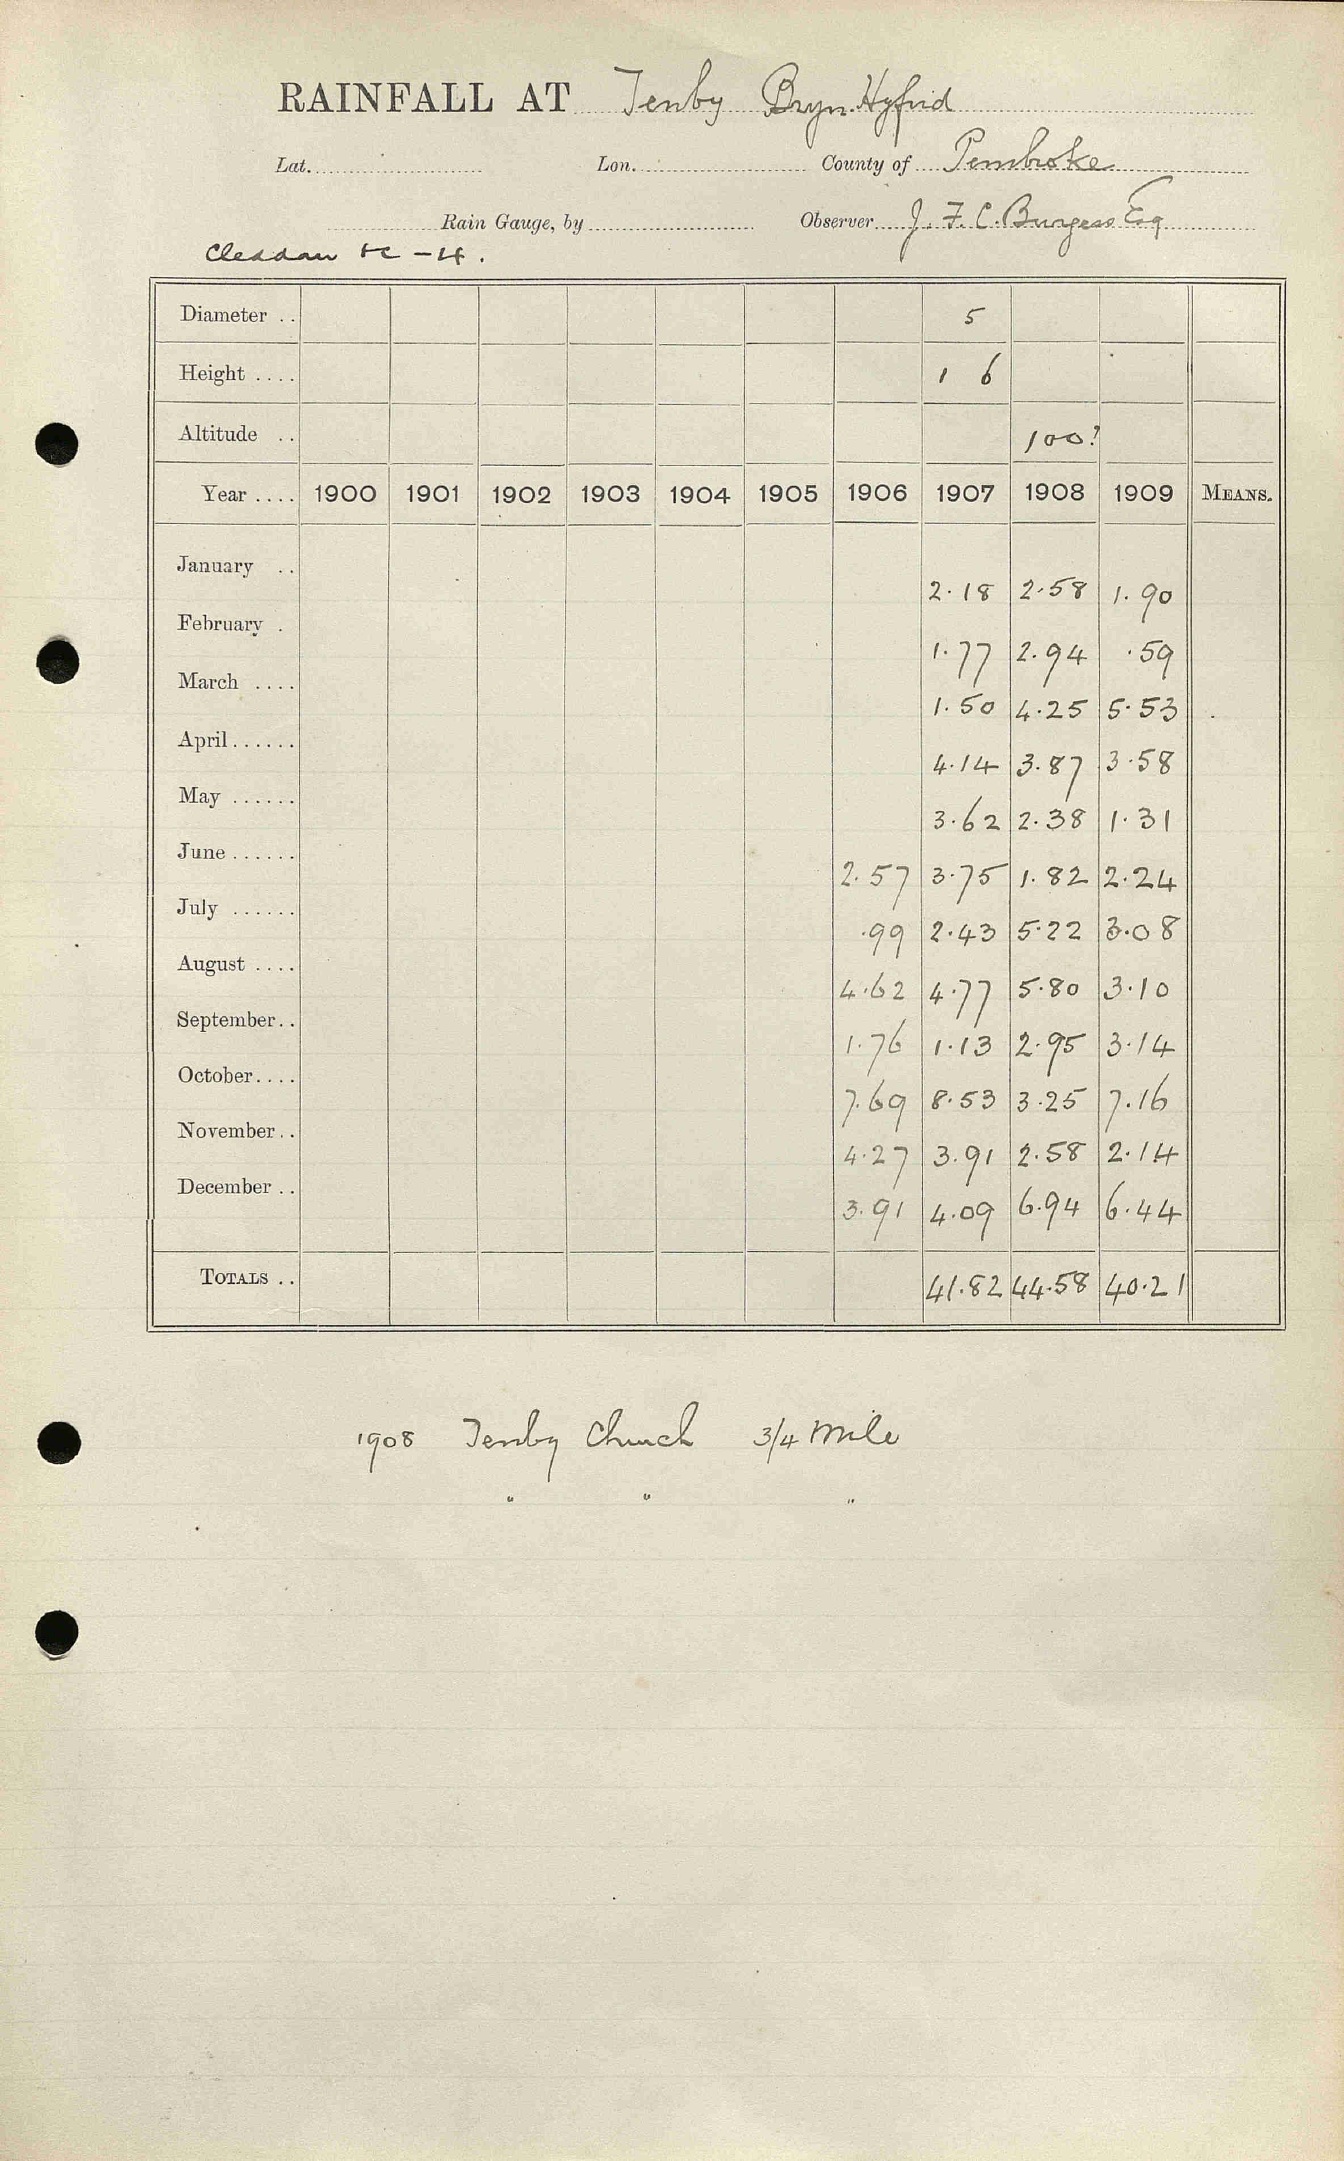 RAINFALL AT Tenby Bryn Hyfrid
Lat. Lon. County of Pembroke
Rain Gauge, by Observer J. F. C. Burgess Esq
Cleddau &c -4.
Diameter .. 5
Height .... 1 6
Altitude .. 100?
Year .... 1900 1901 1902 1903 1904 1905 1906 1907 1908 1909 MEANS.
January .. 2.18 2.58 1.90
February . 1.77 2.94 .59
March .... 1.50 4.25 5.53
April...... 4.14 3.87 3.58
May ...... 3.62 2.38 1.31
June...... 2.57 3.75 1.82 2.24
July ...... .99 2.43 5.22 3.08
August .... 4.62 4.77 5.80 3.10
September.. 1.76 1.13 2.95 3.14
October.... 7.69 8.53 3.25 7.16
November.. 4.27 3.91 2.58 2.14
December .. 3.91 4.09 6.94 6.44
TOTALS .. 41.82 44.58 40.21
1908 Tenby Church 3/4 Mile
" " "